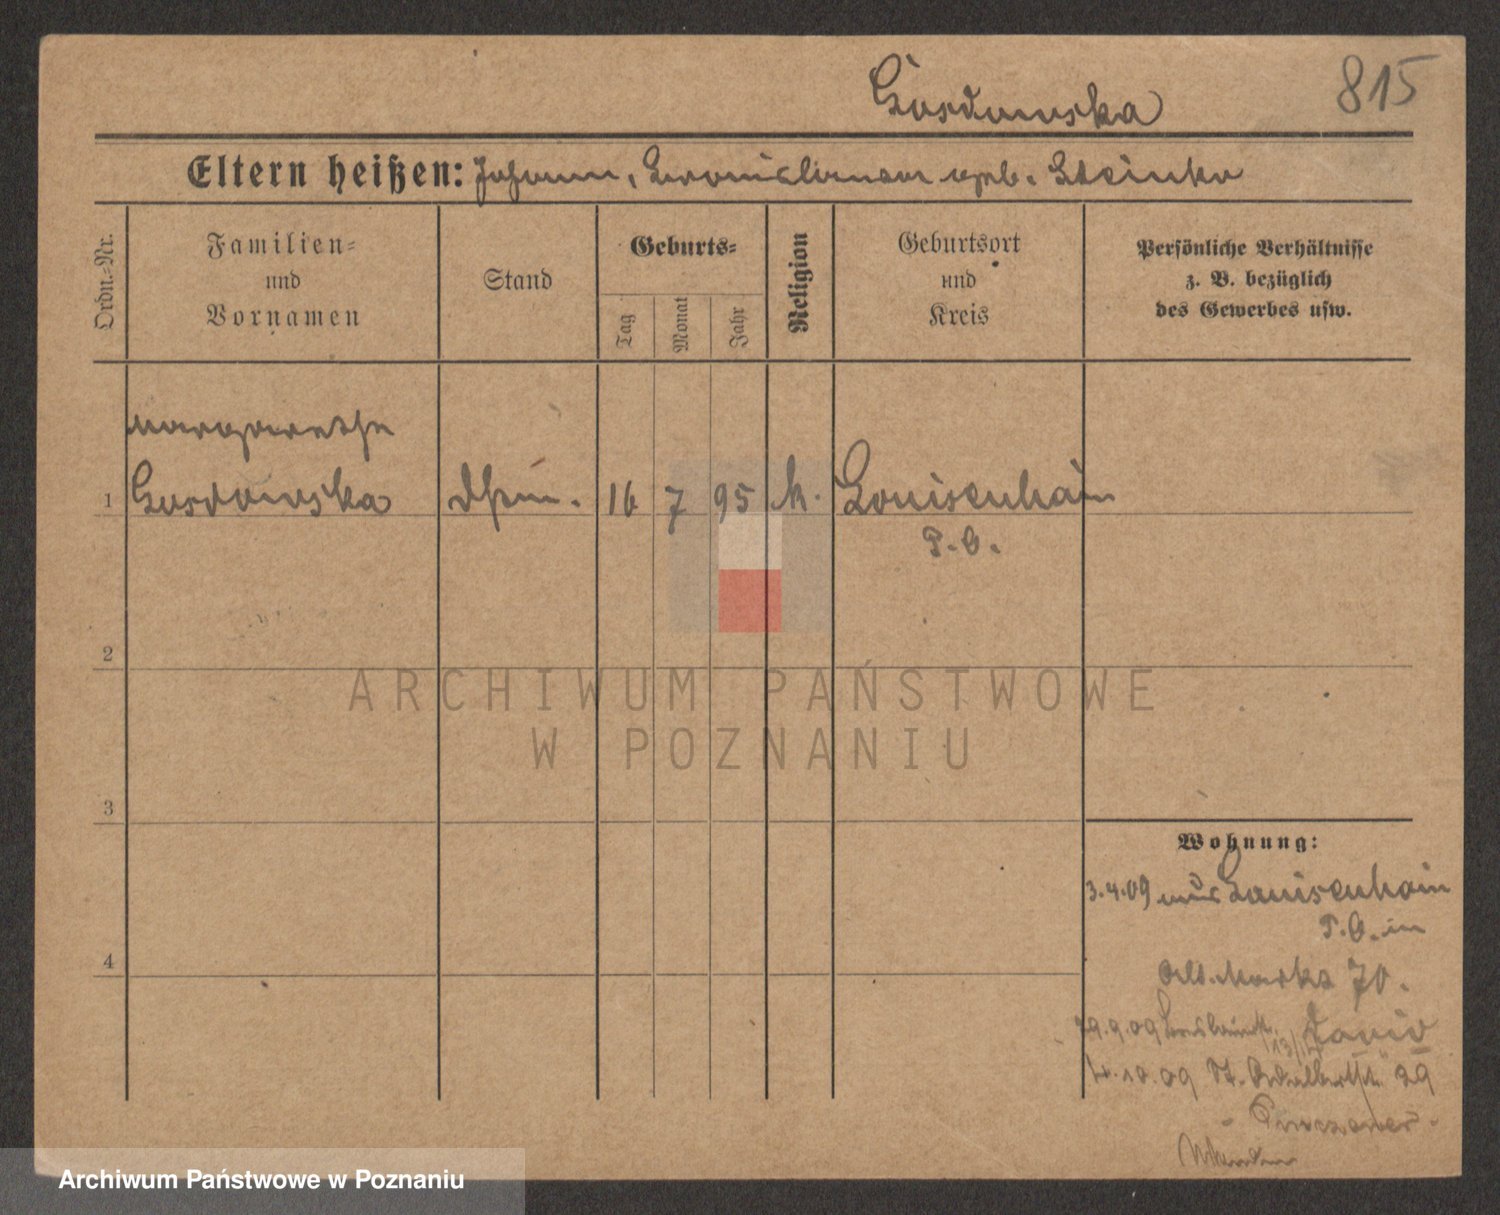 Gosdowska 815
Eltern heißen: Johann, geb.
Ordn.-Nr.
Familien-
und
Vornamen
Stand
Geburts-
Tag
Monat
Jahr
Religion
Geburtsort
und
Kreis
Persönliche Verhältnisse
z. B. bezüglich
des Gewerbes usw.
Margarethe
1 Gosdowska 16 7 95 k. Louisenhain
P. O.
2
ARCHIWUM PAŃSTWOWE
W POZNANIU
3
Wohnung:
3.4.09 aus Louisenhain
P. O. in
Alt. Markt 70.
4
29.9.09 13/14
4.10.09 St. Adalbertstr. 29
Archiwum Państwowe w Poznaniu